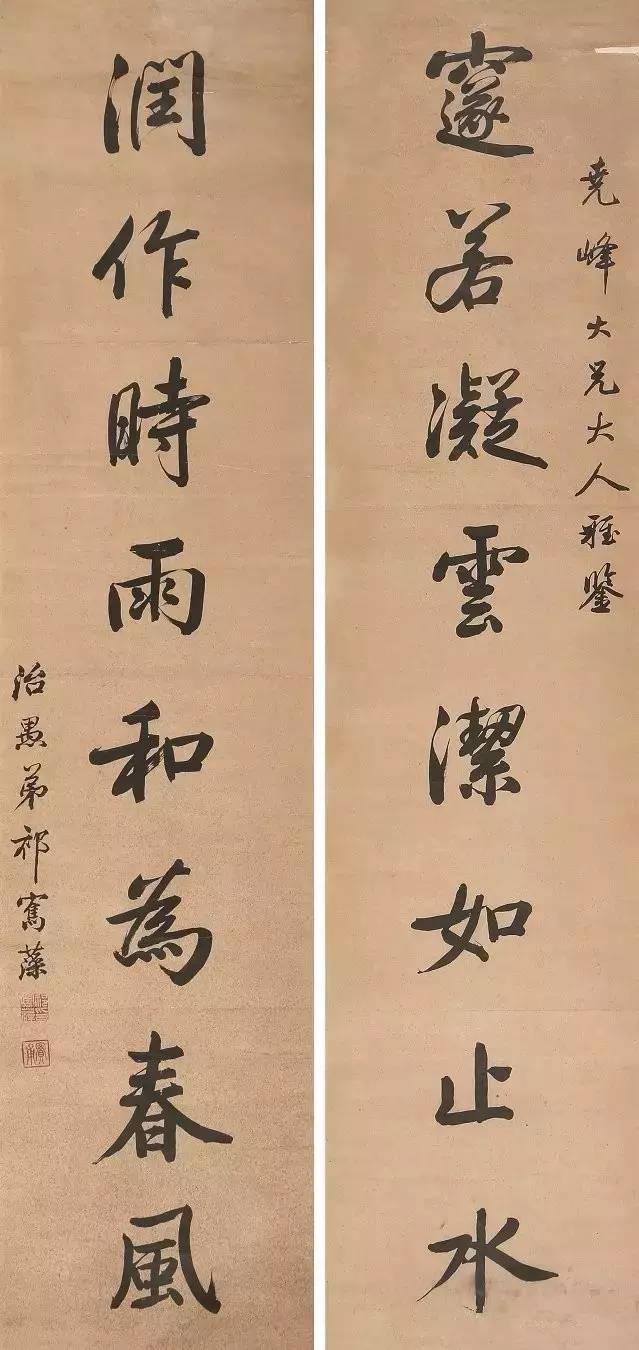 堯峰大兄大人雅鑒
邃若凝雲潔如止水
潤作時雨和為春風
治愚弟祁寯藻